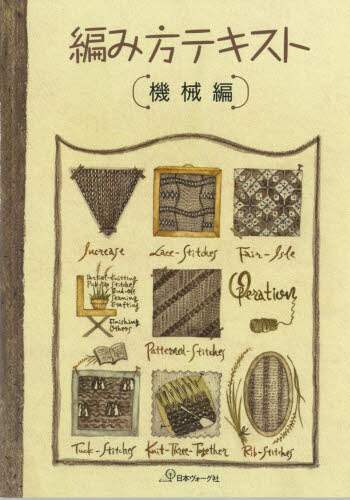 編み方テキスト
機械編
Increase
Lace-Stitches
Fair-Isle
Pocket-Knitting
Stitches
Seaming
Grafting
Finishing
Others
Operation
Patterned-Stitches
Tuck-Stitches
Knit-Three-Together
Rib-Stitches
日本ヴォーグ社